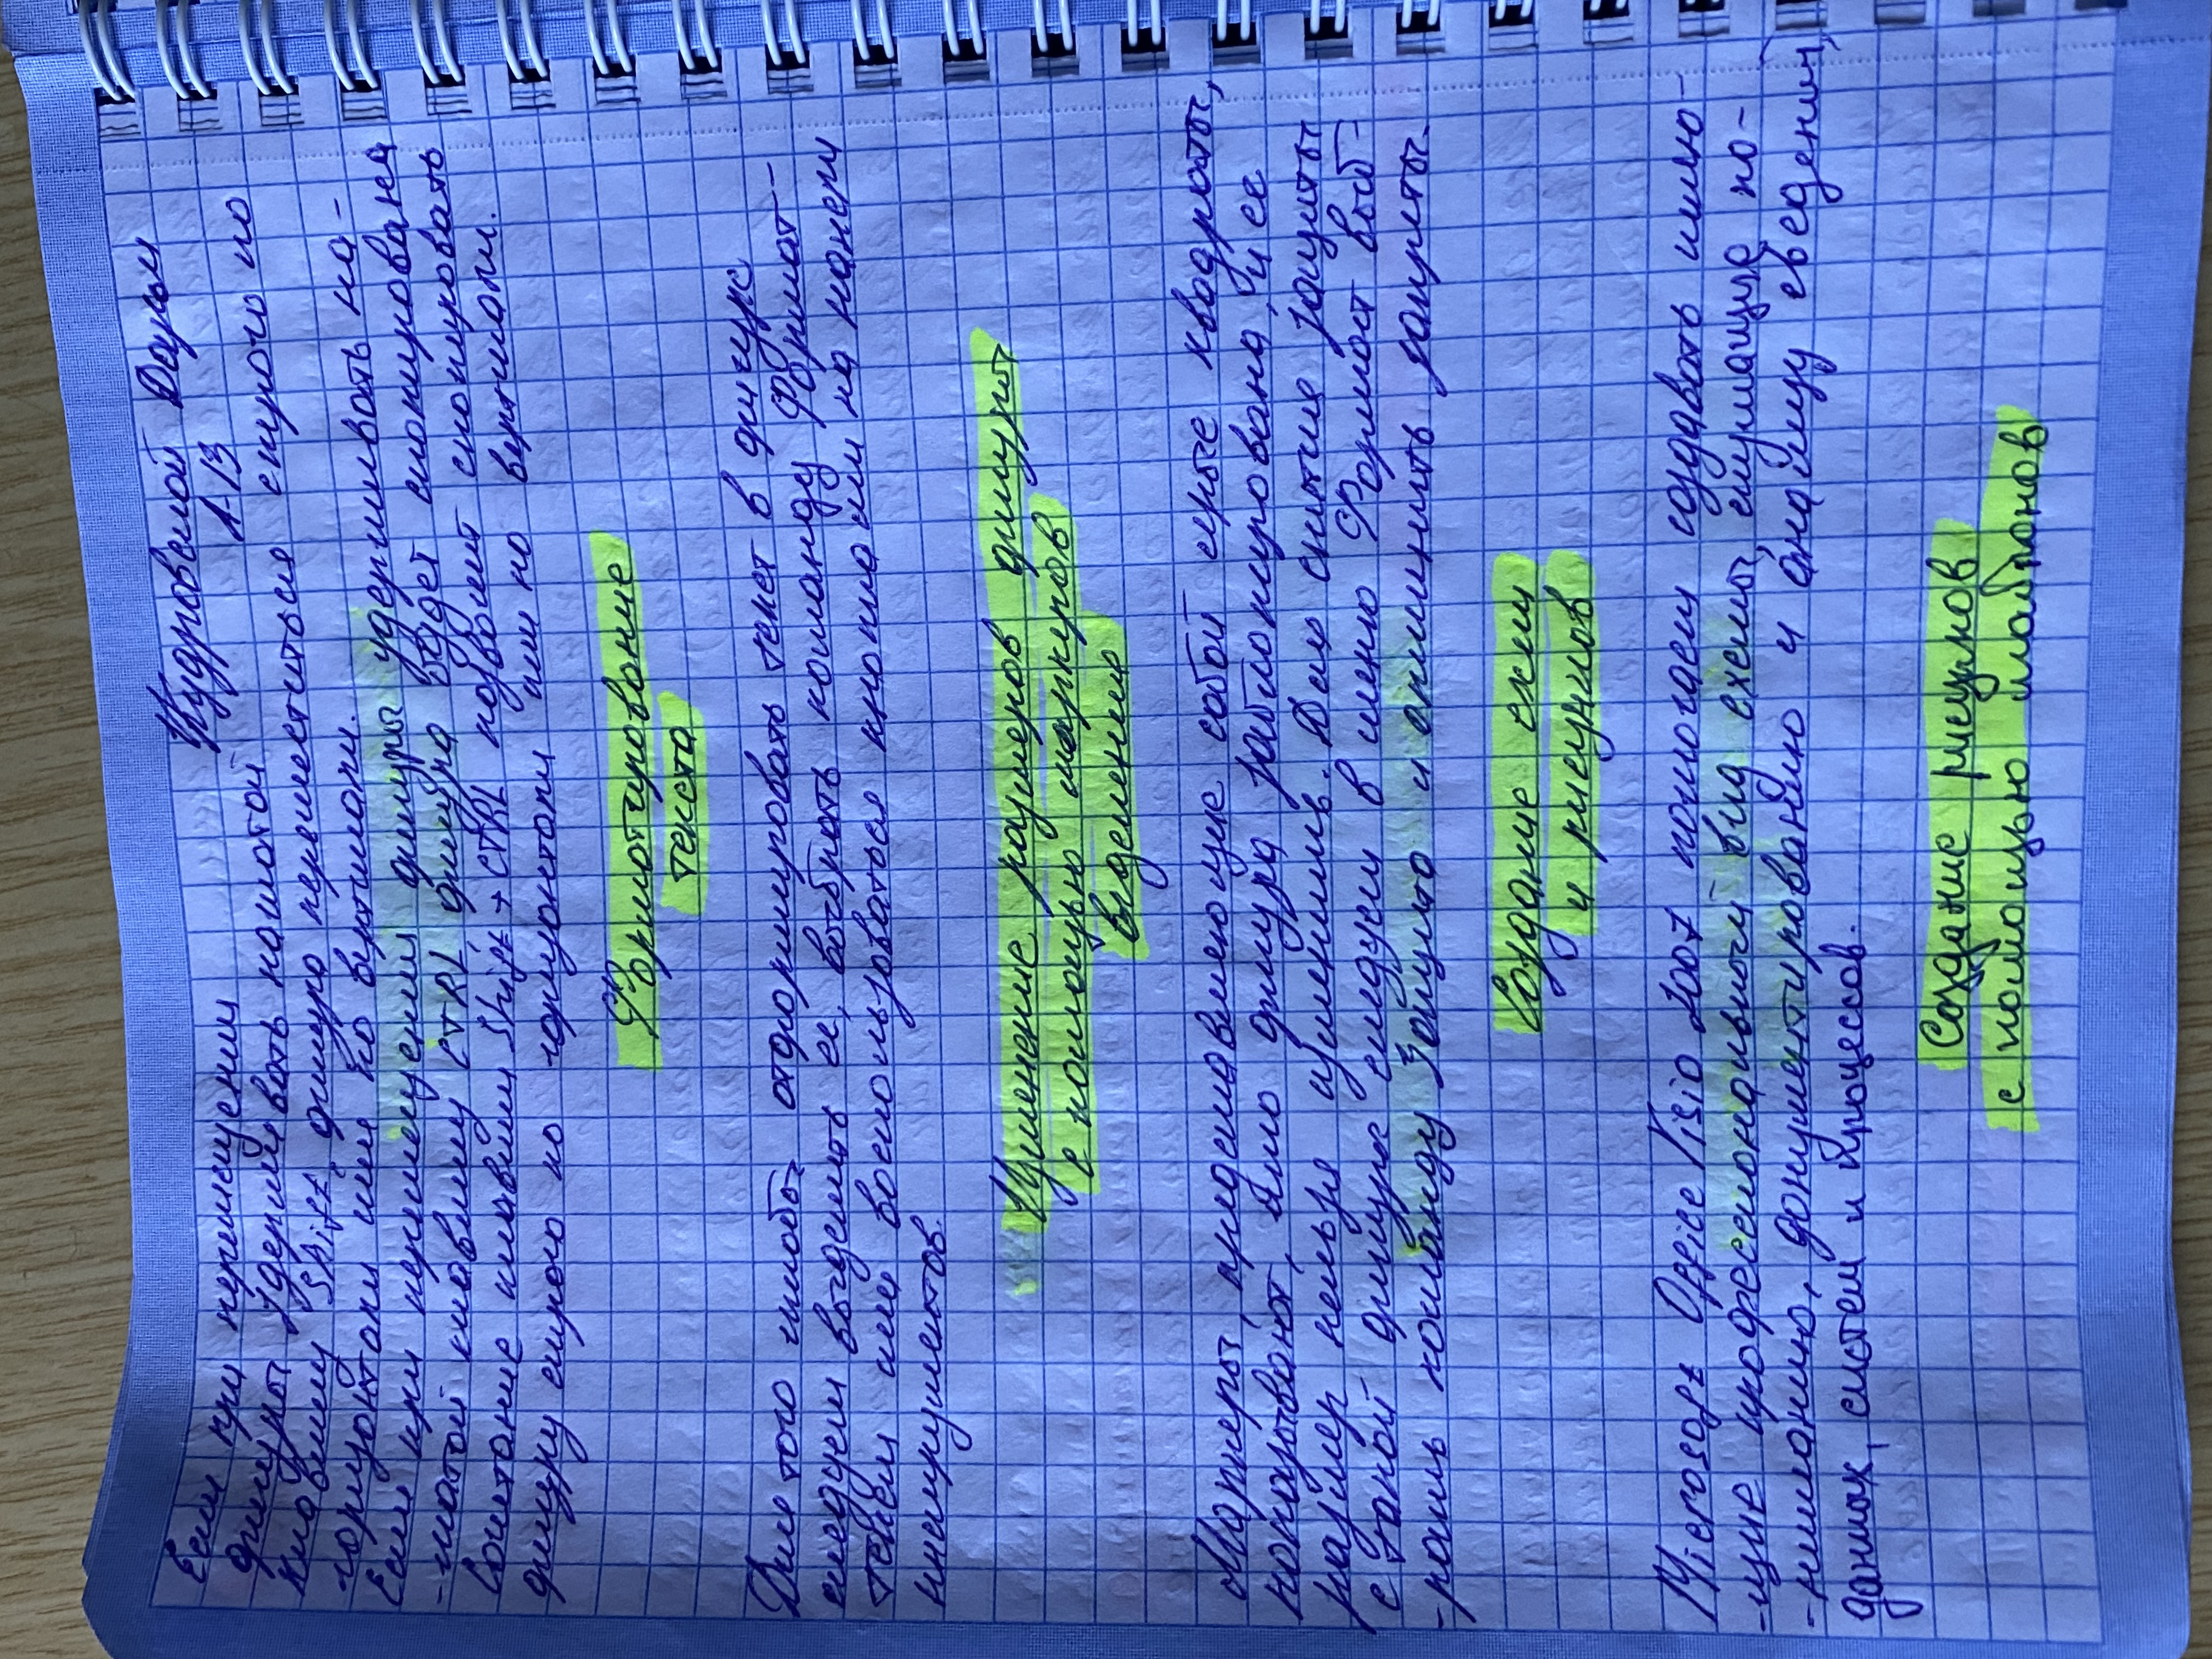 Кудровской Дарьи
А-13
Если при перемещении
фигуры удерживать нажатой
клавишу Shift фигура переместиться строго по
горизонтали или по вертикали.
Если при перемещении фигуры удерживать на-
-жатой клавишу CTRL фигура будет скопирована
Сочетание клавиши Shift + CTRL позволит скопировать
фигуру строго по горизонтали или по вертикали.
Форматирование
текста
Для того чтобы отформатировать текст в фигуре
следуем выделить ее, выбрать команду Формат-
Текст или воспользоваться кнопками на панели
инструментов.
Изменение размеров фигуры
с помощью маркеров
выделения
Маркеры, представляющие собой серые квадраты,
показывают, что фигура заблокирована, и ее
размер нельзя изменить. Для снятия защиты
с такой фигуры следуем в меню Формат выб-
-рать команду Защита и отменить запреты.
Создание схем
и рисунков
Microsoft Office Visio 2007 помогаем создавать имею-
-щие профессиональный вид схемы, служащие по-
-ниманию, документированию и анализу сведений,
данных, систем и процессов.
Создание рисунков
с помощью шаблонов